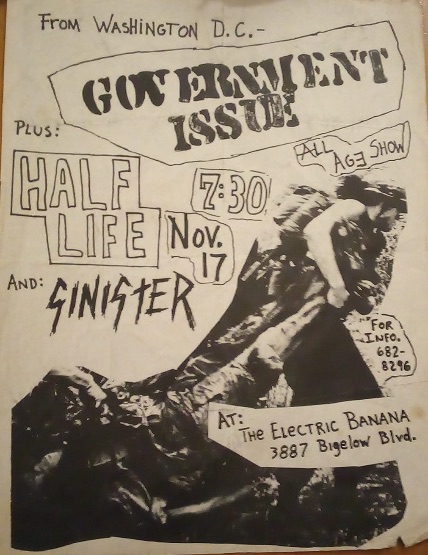 FROM WASHINGTON D.C.-
GOVERNMENT
ISSUE
PLUS:
ALL
AGE SHOW
HALF
LIFE
7:30
NOV.
17
AND:
SINISTER
"FOR
INFO.
682-
8296
AT:
THE ELECTRIC BANANA
3887 Bigelow Blvd.